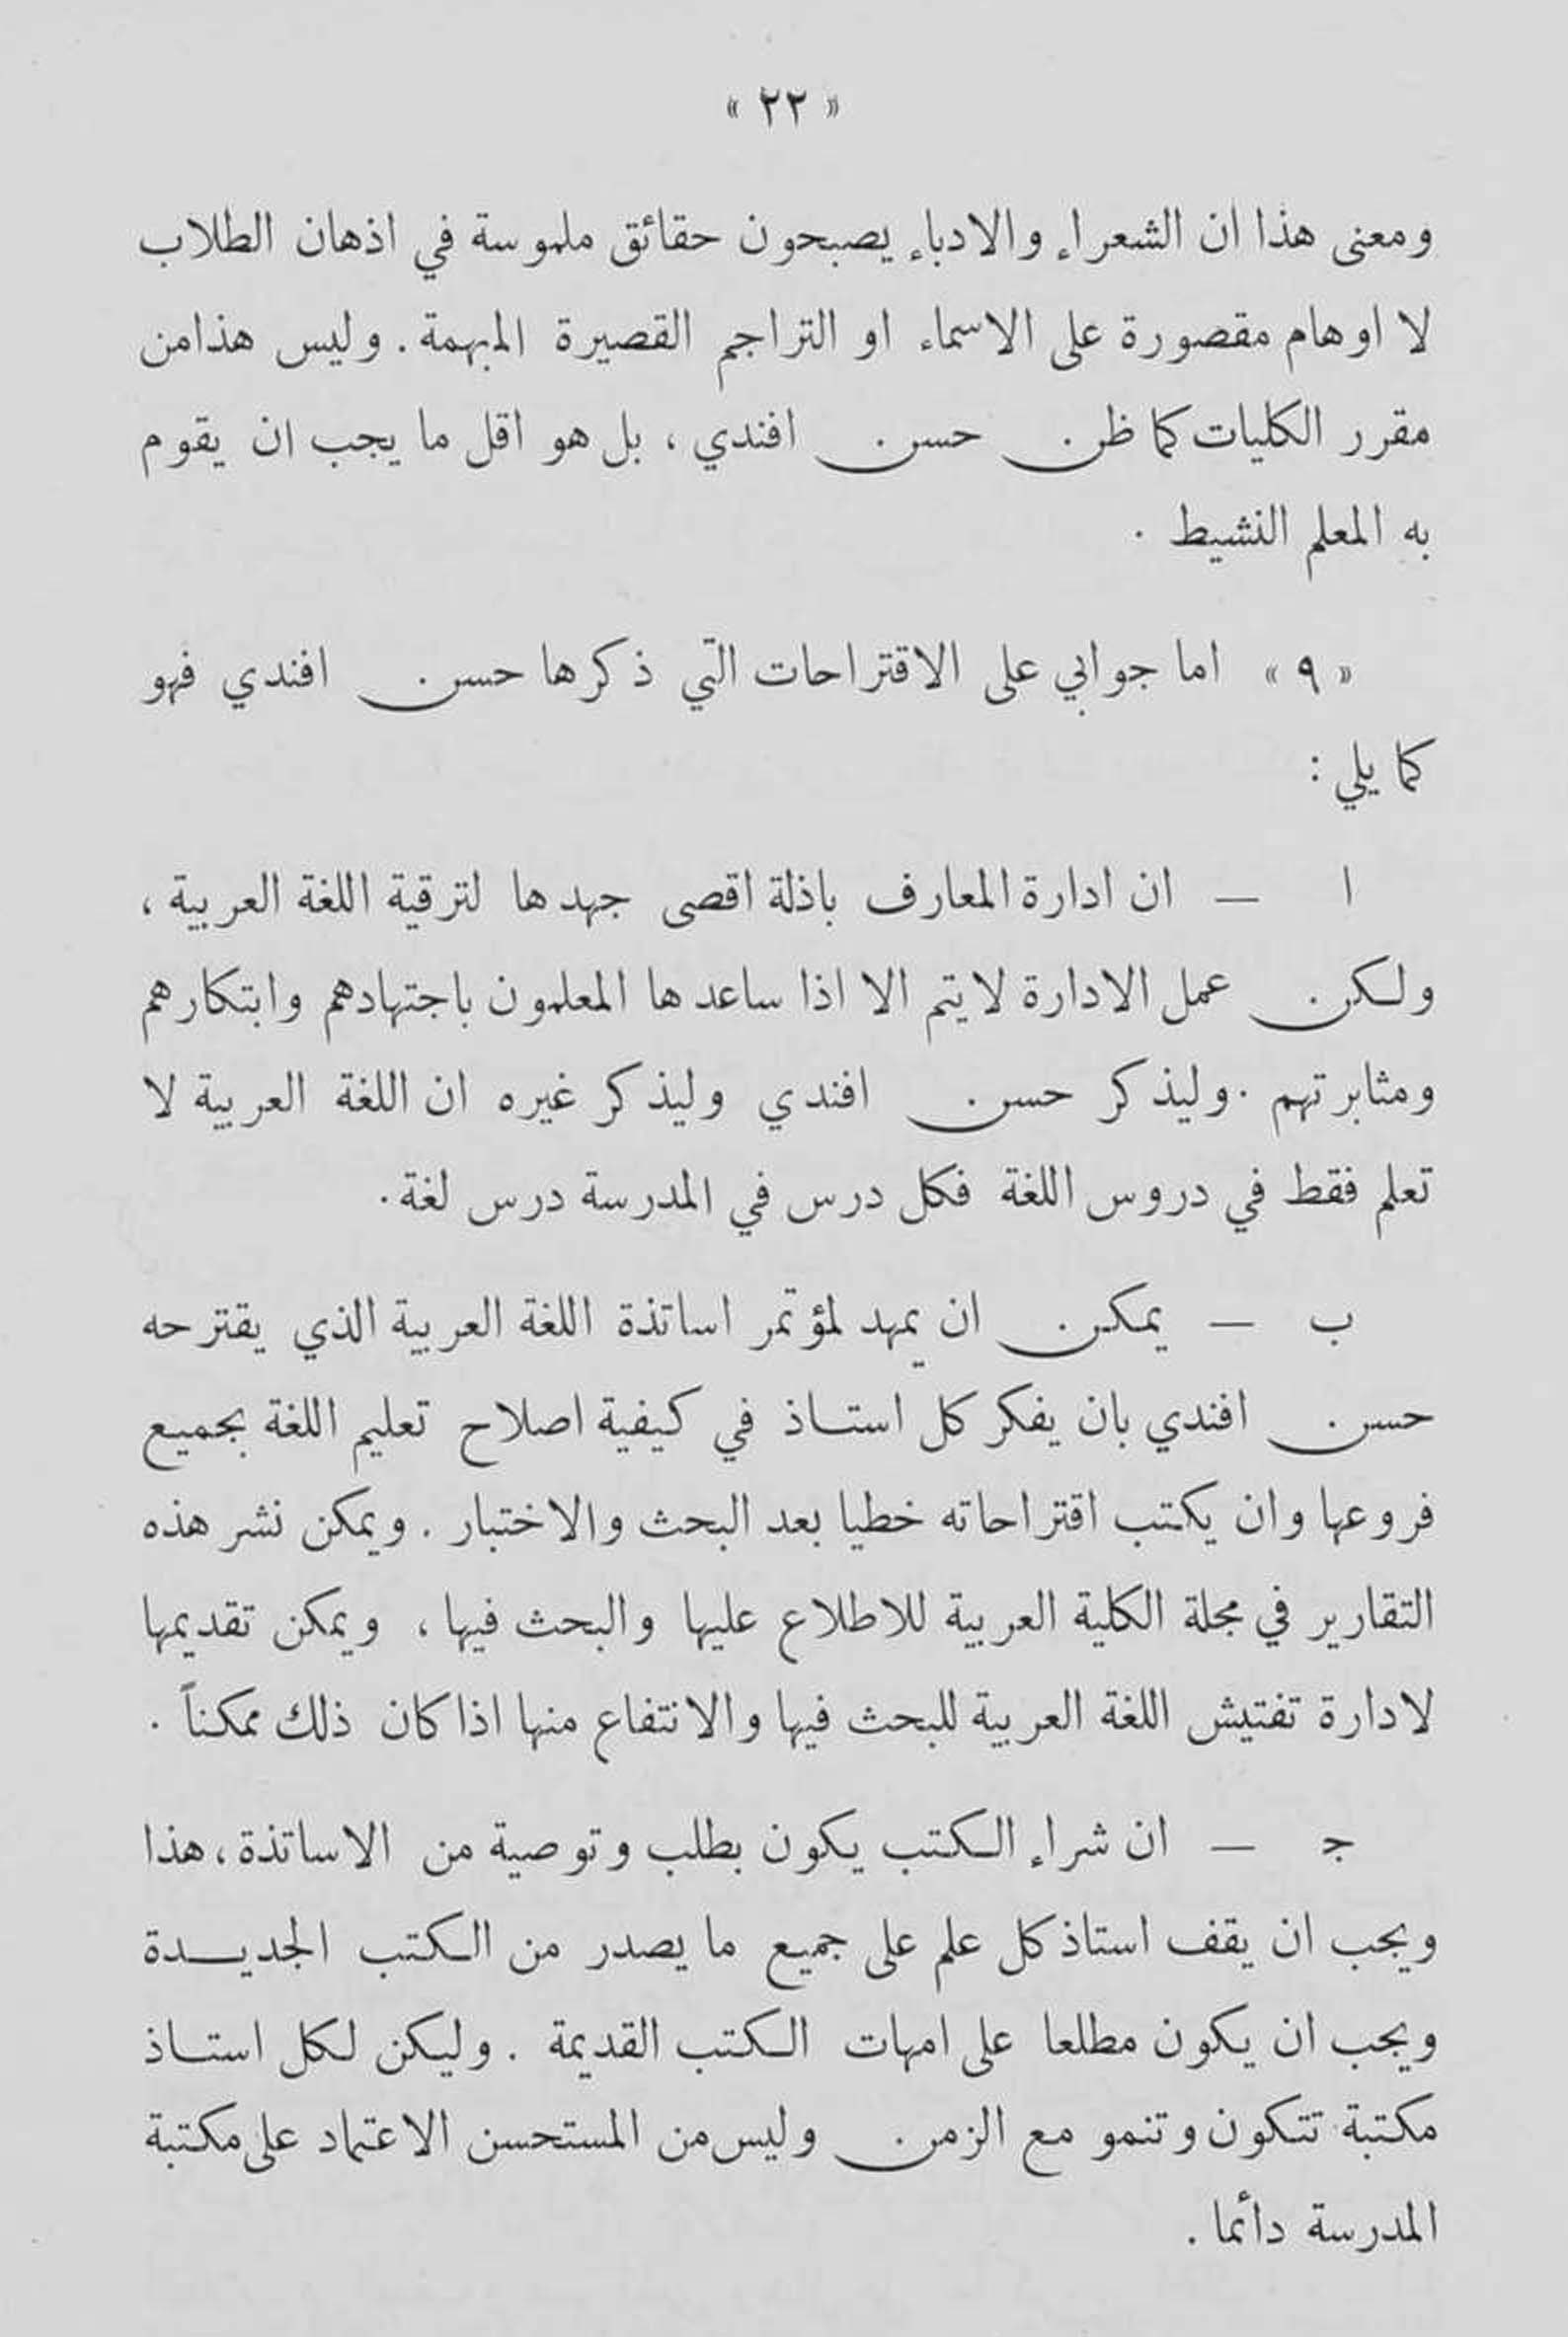 « ٢٢ »
ومعنى هذا ان الشعراء والادباء يصبحون حقائق ملموسة في اذهان الطلاب
لا اوهام مقصورة على الاسماء او التراجم القصيرة المبهمة . وليس هذا من
مقرر الكليات كما ظن حسن افندي ، بل هو اقل ما يجب ان يقوم
به المعلم النشيط .
« ٩ » اما جوابي على الاقتراحات التي ذكرها حسن افندي فهو
كما يلي :
ا — ان ادارة المعارف باذلة اقصى جهدها لترقية اللغة العربية ،
ولكن عمل الادارة لا يتم الا اذا ساعدها المعلمون باجتهادهم وابتكارهم
ومثابرتهم . وليذكر حسن افندي وليذكر غيره ان اللغة العربية لا
تعلم فقط في دروس اللغة فكل درس في المدرسة درس لغة .
ب — يمكن ان يمهد لمؤتمر اساتذة اللغة العربية الذي يقترحه
حسن افندي بان يفكر كل استاذ في كيفية اصلاح تعليم اللغة بجميع
فروعها وان يكتب اقتراحاته خطيا بعد البحث والاختبار . ويمكن نشر هذه
التقارير في مجلة الكلية العربية للاطلاع عليها والبحث فيها ، ويمكن تقديمها
لادارة تفتيش اللغة العربية للبحث فيها والانتفاع منها اذا كان ذلك ممكناً .
جـ — ان شراء الكتب يكون بطلب وتوصية من الاساتذة ، هذا
ويجب ان يقف استاذ كل علم على جميع ما يصدر من الكتب الجديدة
ويجب ان يكون مطلعا على امهات الكتب القديمة . وليكن لكل استاذ
مكتبة تتكون وتنمو مع الزمن وليس من المستحسن الاعتماد على مكتبة
المدرسة دأئما .